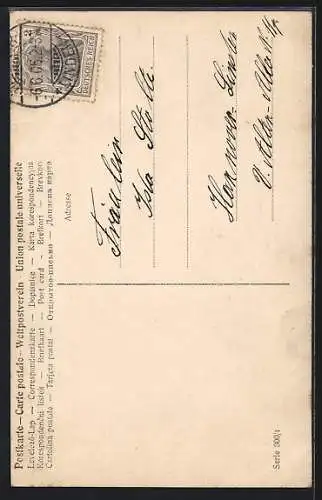 Postkarte — Carte postale — Weltpostverein Union postale universelle
Levelező-Lap — Correspondenzkarte — Dopisnice — Karta korespondencyjna
Korespondenční lístek — Briefkaart — Post card — Brefkort — Brevkort
Cartolina postale — Tarjeta postal — Открытое письмо — Дописна карта
DEUTSCHES REICH
LINDEN
Adresse
Fräulein
Isa Stolle.
Hannover-Linden
Serie 000/1